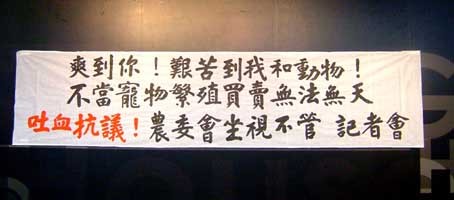 爽到你！艱苦到我和動物！
不當寵物繁殖買賣無法無天
吐血抗議！農委會坐視不管 記者會